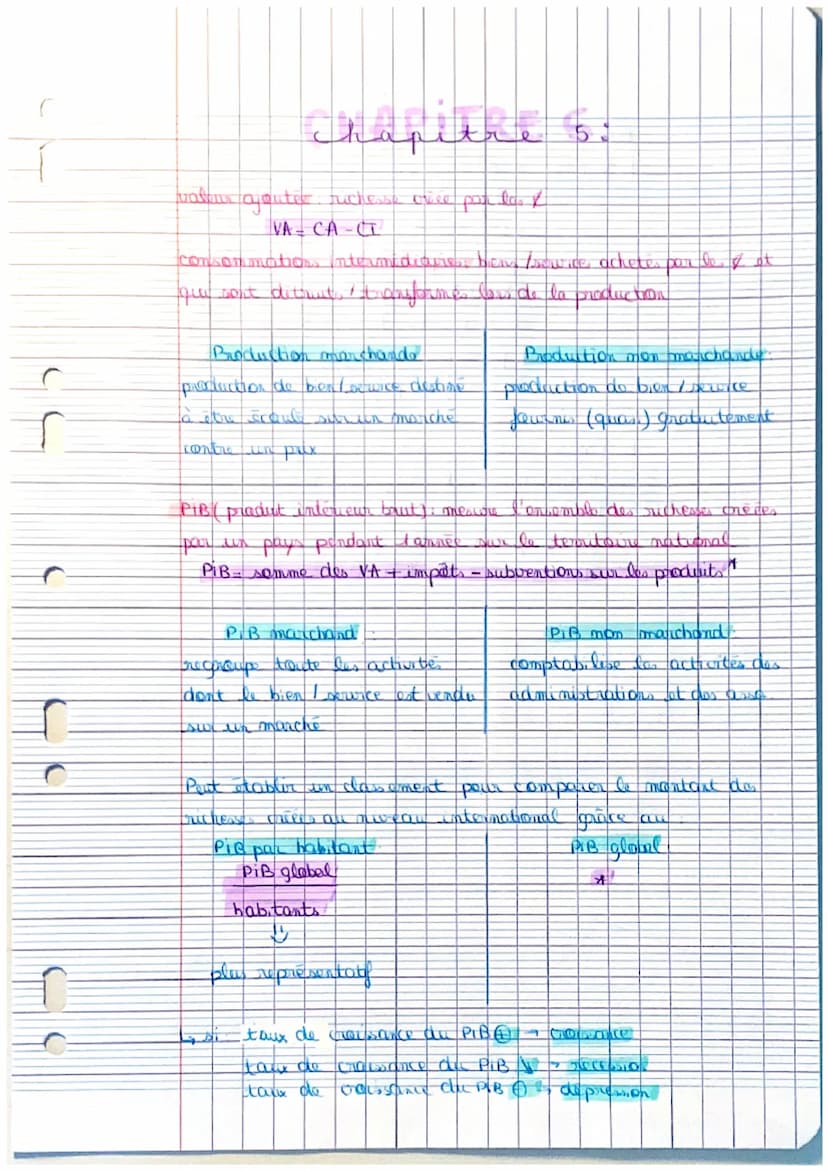 CHAPITRE 5:
chapitre 5:
valeur ajoutée: richesse créée par les
VA = CA - CI
consommations intermédiaires: biens/service achetés par les et
qui sont détruits/transformés lors de la production
Production marchande
production de bien/service destiné
à être écoulé sur un marché
contre un prix
Production non marchande:
production de bien/service
fournis (quasi) gratuitement
PIB (produit intérieur brut): mesure l'ensemble des richesses créées
par un pays pendant 1 année sur le territoire national
PIB = somme des VA + impôts - subventions sur les produits *
PIB marchand:
regroupe toute les activités
dont le bien/service est vendu
sur un marché
PIB non marchand:
comptabilise les activités des
administrations et des asso
Peut établir un classement pour comparer le montant des
richesses créées au niveau international grâce au:
PIB par habitant
PIB global
habitants
plus représentatif
PIB global
*
↳ si taux de croissance du PIB ⊕ → croissance
taux de croissance du PIB ↘ → récession
taux de croissance du PIB ⊖ → dépression